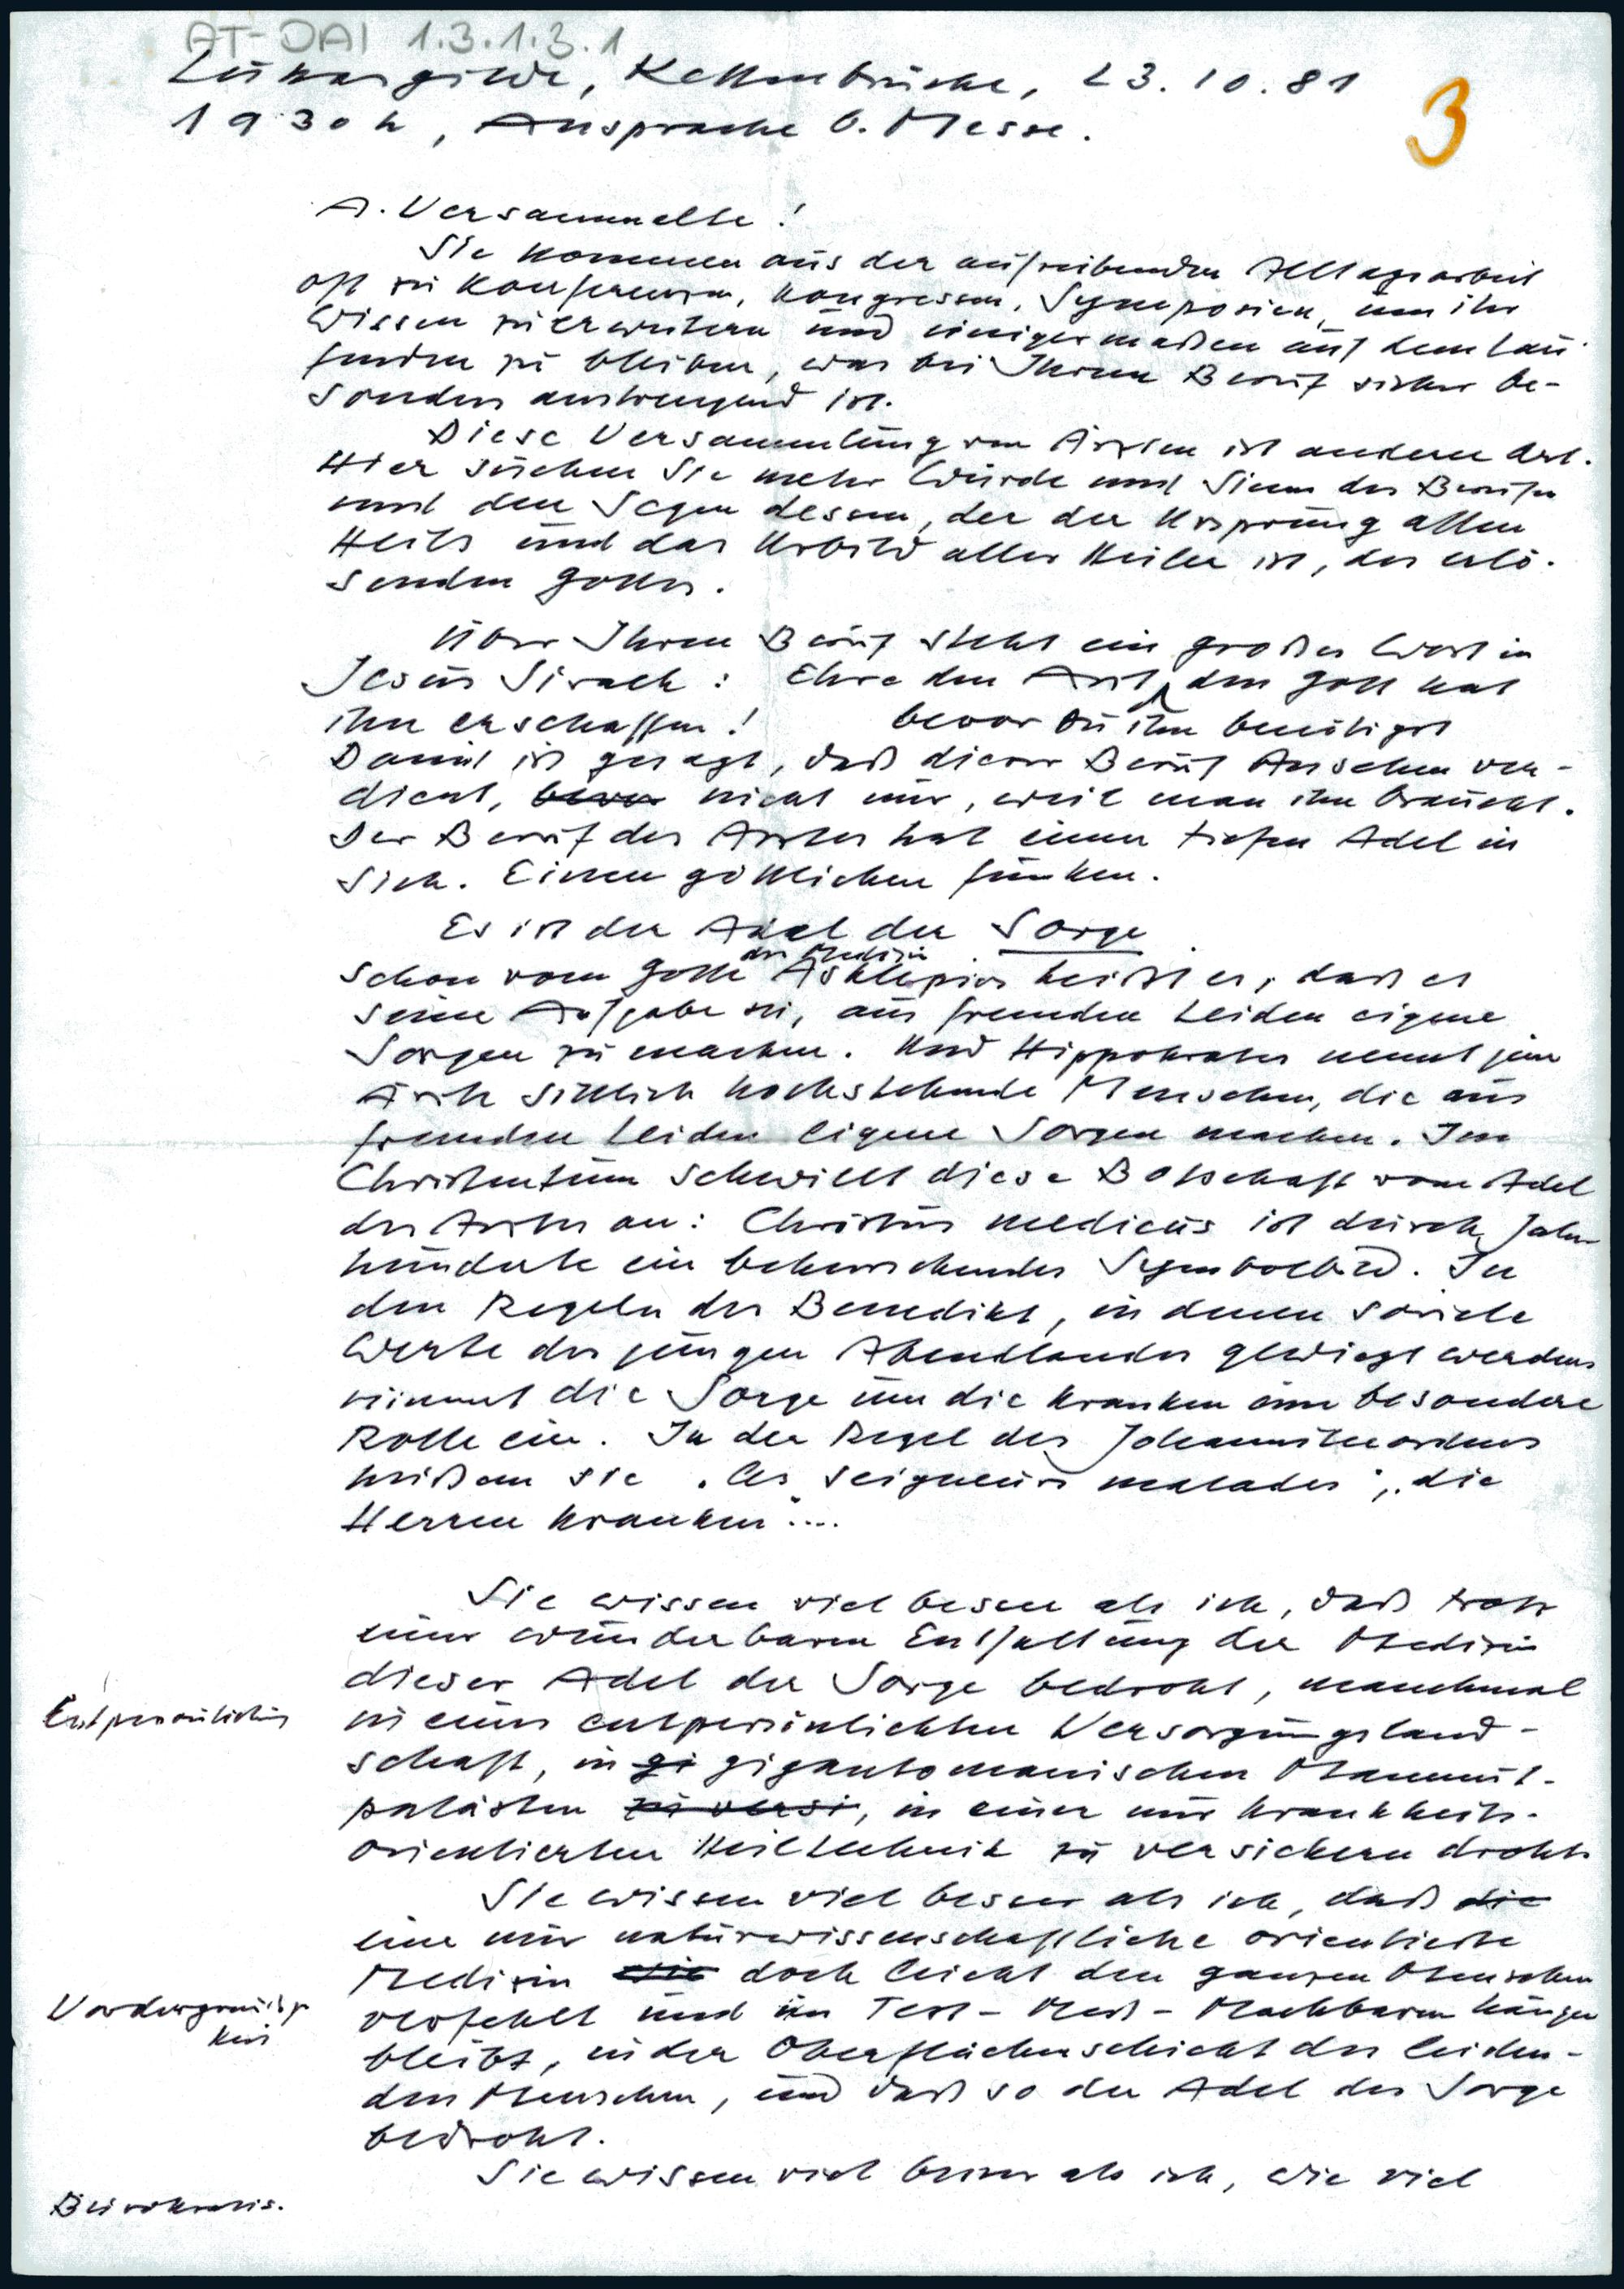 AT-DAI 1.3.1.3.1
Lukasgilde, Kettenbrücke, 23.10.81
1930h, Ansprache b. Messe.
3
A. Versammelte!
Sie kommen aus der aufreibenden Alltagsarbeit
oft zu Konferenzen, Kongressen, Symposien, um ihr
Wissen zu erweitern und einigermaßen auf dem Lau-
fenden zu bleiben, was bei Ihrem Beruf sicher be-
sonders anstrengend ist.
Diese Versammlung von Ärzten ist anderer Art.
Hier suchen Sie mehr Würde und Sinn des Berufes
und den Segen dessen, der der Ursprung allen
Heils und das Urbild aller Heiler ist, des erlö-
senden Gottes.
Über Ihrem Beruf steht ein großes Wort in
Jesus Sirach: Ehre den Arzt, den Gott hat
ihn erschaffen! bevor du ihn benötigst
Damit ist gesagt, daß dieser Beruf Ansehen ver-
dient, bevor nicht nur, weil man ihn braucht.
Der Beruf des Arztes hat einen tiefen Adel in
sich. Einen göttlichen Funken.
Es ist der Adel der Sorge.
der Medizin
Schon vom Gott Asklepios heißt es, daß es
seine Aufgabe sei, aus fremden Leiden eigene
Sorgen zu machen. Und Hippokrates nennt jene
Ärzte sittlich hochstehende Menschen, die aus
fremden Leiden eigene Sorgen machen. Im
Christentum schwillt diese Botschaft vom Adel
des Arztes an: Christus medicus ist durch Jahr
hunderte ein beherrschendes Symbolbild. In
den Regeln des Benedikt, in denen soviele
Werte des jungen Abendlandes gewiegt werden
nimmt die Sorge um die Kranken eine besondere
Rolle ein. In der Regel des Johanniterordens
heißen sie "les seigneurs malades", "die
Herren Kranken"....
Sie wissen viel besser als ich, daß trotz
einer wunderbaren Entfaltung der Medizin
dieser Adel der Sorge bedroht, manchmal
Entpersönlichung
in einer entpersönlichten Versorgungsland-
schaft, in gi gigantomanischen Mammut-
palästen zu versi, in einer nur krankheits-
orientierten Heiltechnik zu versickern droht.
Sie wissen viel besser als ich, daß die
eine nur naturwissenschaftliche orientierte
Medizin die doch leicht den ganzen Menschen
Vordergründig-
keit
verfehlt und im Test-Meß-Machbaren hängen
bleibt, in der Oberflächenschicht des leiden-
den Menschen, und daß so der Adel der Sorge
bedroht.
Sie wissen viel besser als ich, wie viel
Bürokratis.